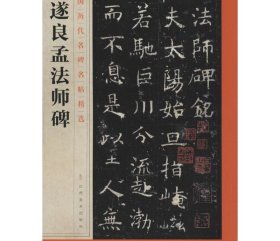 遂良孟法师碑
国历代名碑名帖精选
法師碑銘
夫太陽始旦指崦嵫
若馳巨川分流赴渤
而不息是以至人無